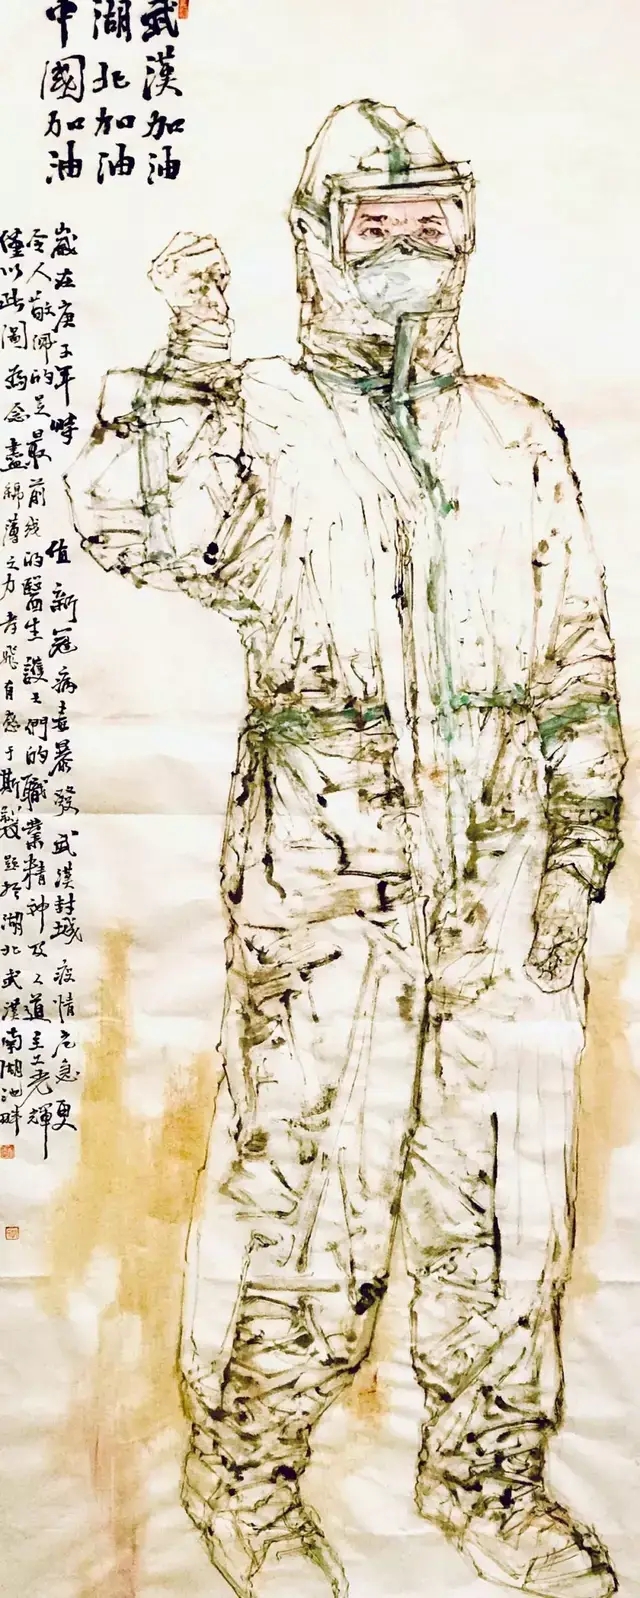 武漢加油
湖北加油
中國加油
歲在庚子年時值新冠病毒暴發武漢封城疫情危急更
令人敬佩的是最前线的醫生護士們的職業精神及人道主义光輝
僅以此圖為念盡綿薄之力 飛有感于斯製題於湖北武漢南湖池畔